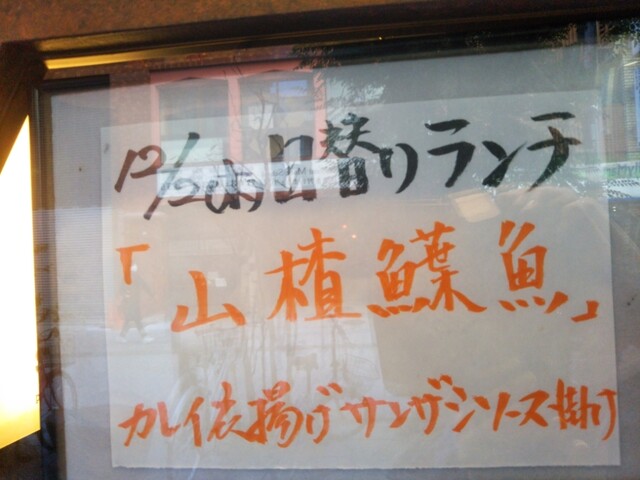 12/2(水)日替りランチ
「山楂鰈魚」
カレイ衣揚げサンザシソース掛け